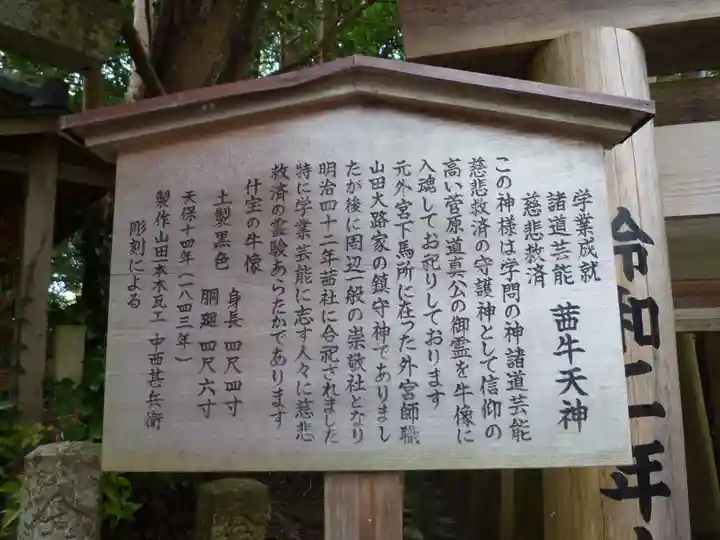 学業成就
諸道芸能
慈悲救済
茜牛天神
この神様は学問の神諸道芸能
慈悲救済の守護神として信仰の
高い菅原道真公の御霊を牛像に
入魂してお祀りしております
元外宮下馬所に在った外宮師職
山田大路家の鎮守神でありまし
たが後に周辺一般の崇敬社となり
明治四十二年茜社に合祀されました
特に学業芸能に志す人々に慈悲
救済の霊験あらたかであります
什宝の牛像
土製黒色 身長 四尺四寸
胴廻 四尺六寸
天保十四年(一八四三年)
製作山田本木瓦工 中西甚兵衛
彫刻による
令和二年